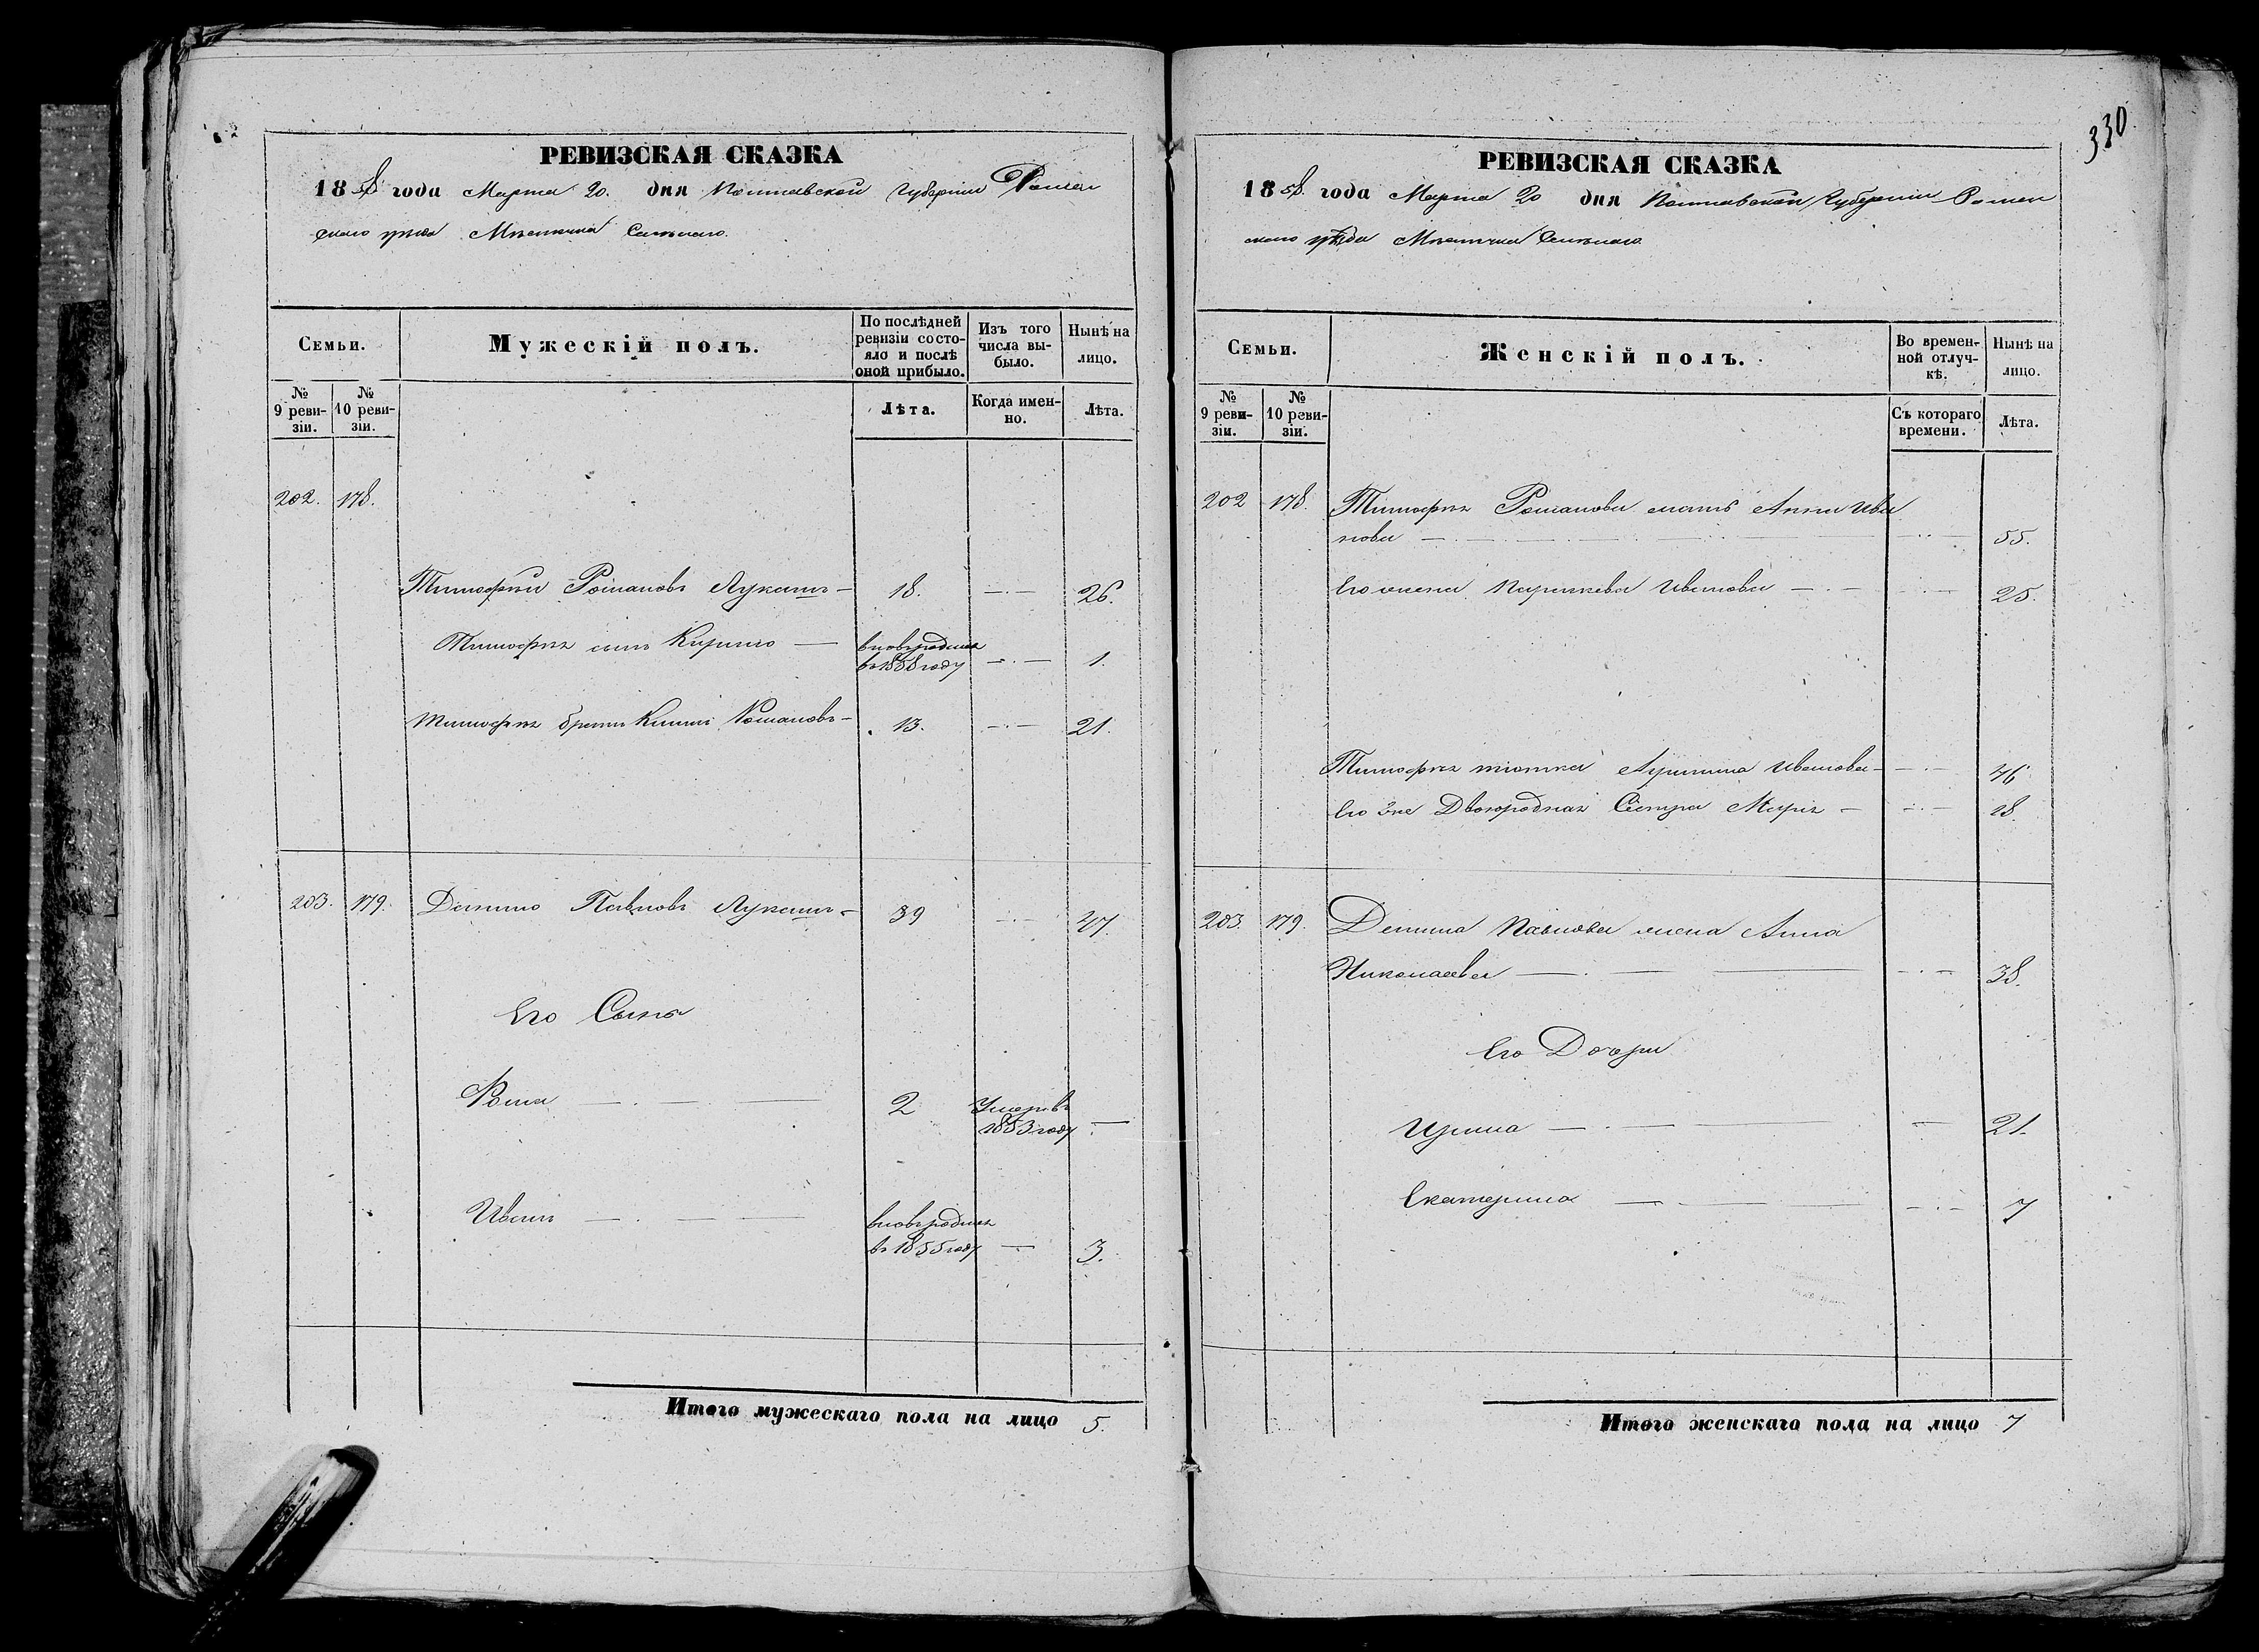 РЕВИЗСКАЯ СКАЗКА
1858 года Марта 20. дня Полтавской Губерніи Ромен
скаго уѣзда Мѣстечка
Семьи.
Мужескій полъ.
По послѣдней ревизіи состояло и послѣ оной прибыло.
Изъ того числа выбыло.
Нынѣ на лицо.
№ 9 ревизіи.
№ 10 ревизіи.
Лѣта.
Когда именно.
Лѣта.
202. 178.
Тимофѣй Романовъ Лукашъ — 18. — 26.
Тимофѣя сынъ Кирило — вновьродился
въ 1858 году — 1.
Тимофѣя братъ Климъ Романовъ — 13. — 21.
203. 179. Демьянъ Павловъ Лукашъ — 39 — 47.
Его Сыны
Рома — 2 Умеръ въ
1853 году —
Иванъ — вновьродился
въ 1855 году — 3.
Итого мужескаго пола на лицо 5.
330
РЕВИЗСКАЯ СКАЗКА
1858. года Марта 20 дня Полтавской Губерніи Ромен
скаго уѣзда Мѣстечка
Семьи.
Женскій полъ.
Во временной отлучкѣ.
Нынѣ на лицо.
№ 9 ревизіи.
№ 10 ревизіи.
Съ котораго времени.
Лѣта.
202 178. Тимофѣя Романова мать Анна Ива
нова — 55.
Его жена Параскева Иванова — 25.
Тимофѣя тіотка Иванова — 46
Его же Двоюродная Сестра Марія — 18.
203. 179. Павлова жена Анна
Николаева — 38.
Его Дочери
Ирина — 21.
Екатерина — 7
Итого женскаго пола на лицо 7